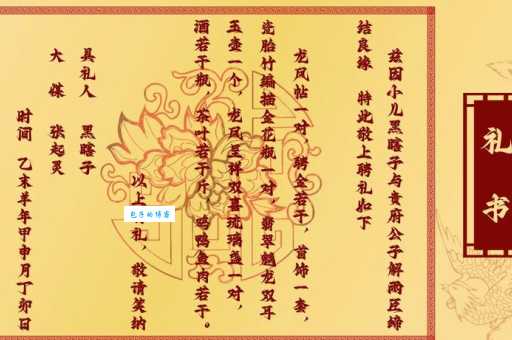 礼书
兹因小儿黑瞎子与贵府公子解雨臣缔
结良缘 特此敬上聘礼如下
龙凤帖一对，聘金若干，首饰一套，
瓷胎竹编描金花瓶一对，翡翠螭龙双耳
玉壶一个，龙凤呈祥双喜琉璃盏一对，
酒若干瓶，茶叶若干斤，鸡鸭鱼肉若干。
以上聘礼，敬请笑纳
具礼人 黑瞎子
大媒 张起灵
时间 乙未羊年甲申月丁卯日
包子的博客